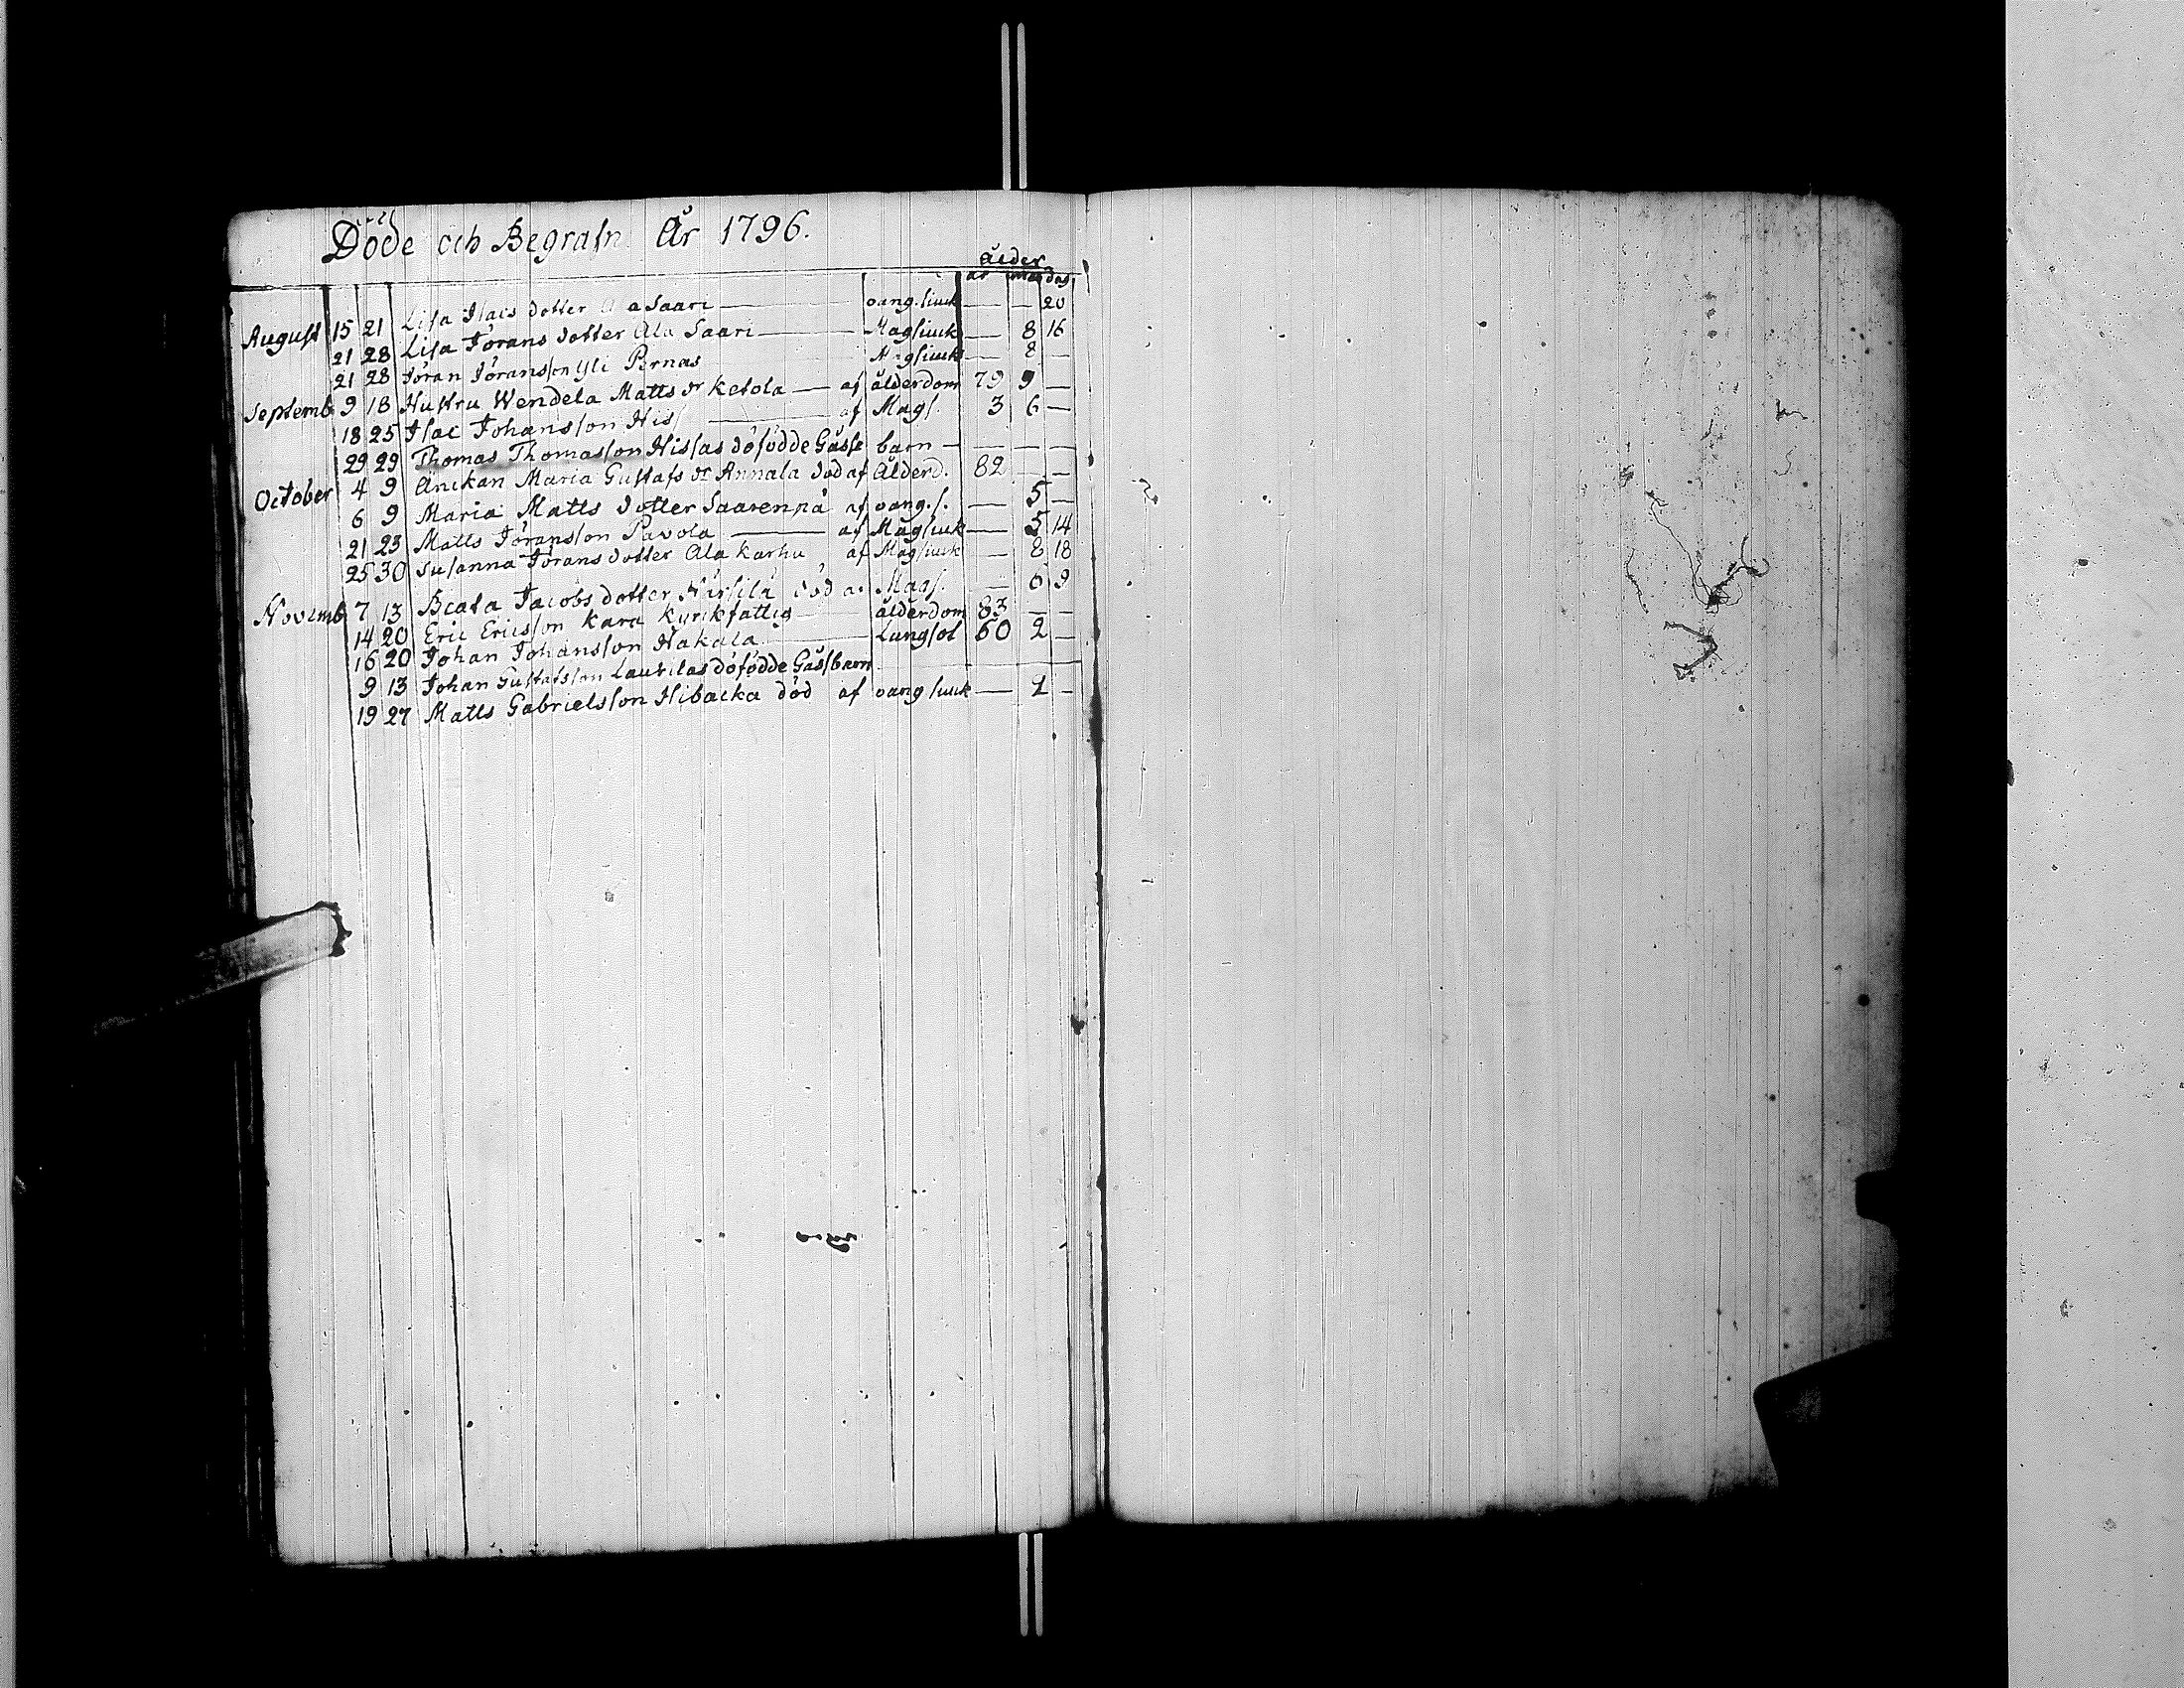 Döde och Begrafn År 1796.
ålder
år mån dag
August 15 21 Lisa Isacs dotter Ala Saari — oangsiuck — — 20
21 28 Lisa Jörans dotter Ala Saari — Magsiuck — 8 16
21 28 Jöran Jöransson Yli Pernas Magsiuck — 8 —
Septemb 9 18 Hustru Wendela Matts dr Ketola — af ålderdom 79 9 —
18 25 Isac Johansson His — af Mags. 3 6 —
29 29 Thomas Thomasson Hissas döfödde Gåsse barn — — — —
October 4 9 Anckan Maria Gustafs dr Annala död af Ålderd. 82 — —
6 9 Maria Matts dotter Saarenpä af oang.s. — 5 —
21 23 Matts Jöransson Pavola — af Magsiuck — 5 14
25 30 Susanna Jörans dotter Ala Karhu af Magsiuck — 8 18
Novemb 7 13 Beata Jacobs dotter död af Mags. — 6 9
14 20 Eric Ericsson Kara Kyrkfattig — ålderdom 83 — —
16 20 Johan Johansson Hakala — Lungsot 60 2 —
9 13 Johan Gustafsson Laurilas döfödde Gåssbarn —
19 27 Matts Gabrielsson Hibacka död af oangsiuck — 1 —